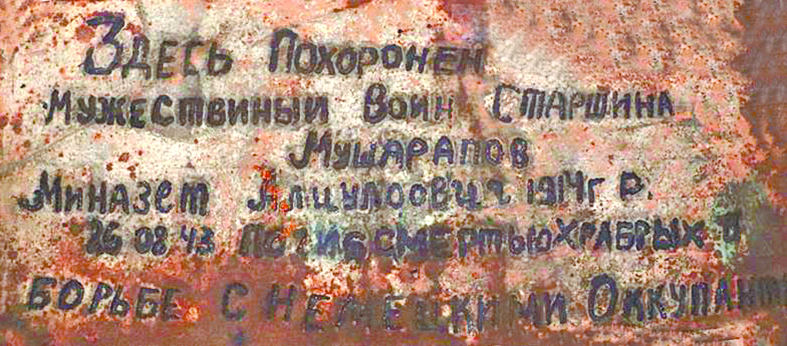 Здесь Похоронен
Мужествиный Воин Старшина
Мушарапов
Миназет 1914г Р.
26 08 43 Погиб смертью храбрых В
борьбе с немецкими Оккупан